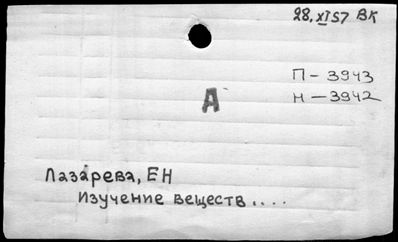 28.XI57 ВК
П-3943
А
Н-3942
Лазарева, ЕН
Изучение веществ....